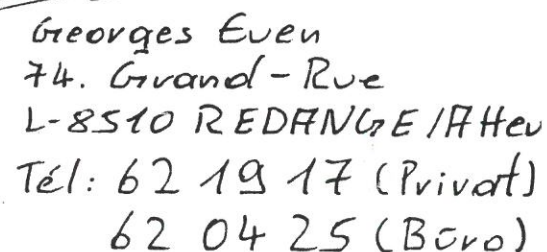 Georges Even
74. Grand-Rue
L-8510 REDANGE/Attert
Tél: 62 19 17 (Privat)
62 04 25 (Büro)